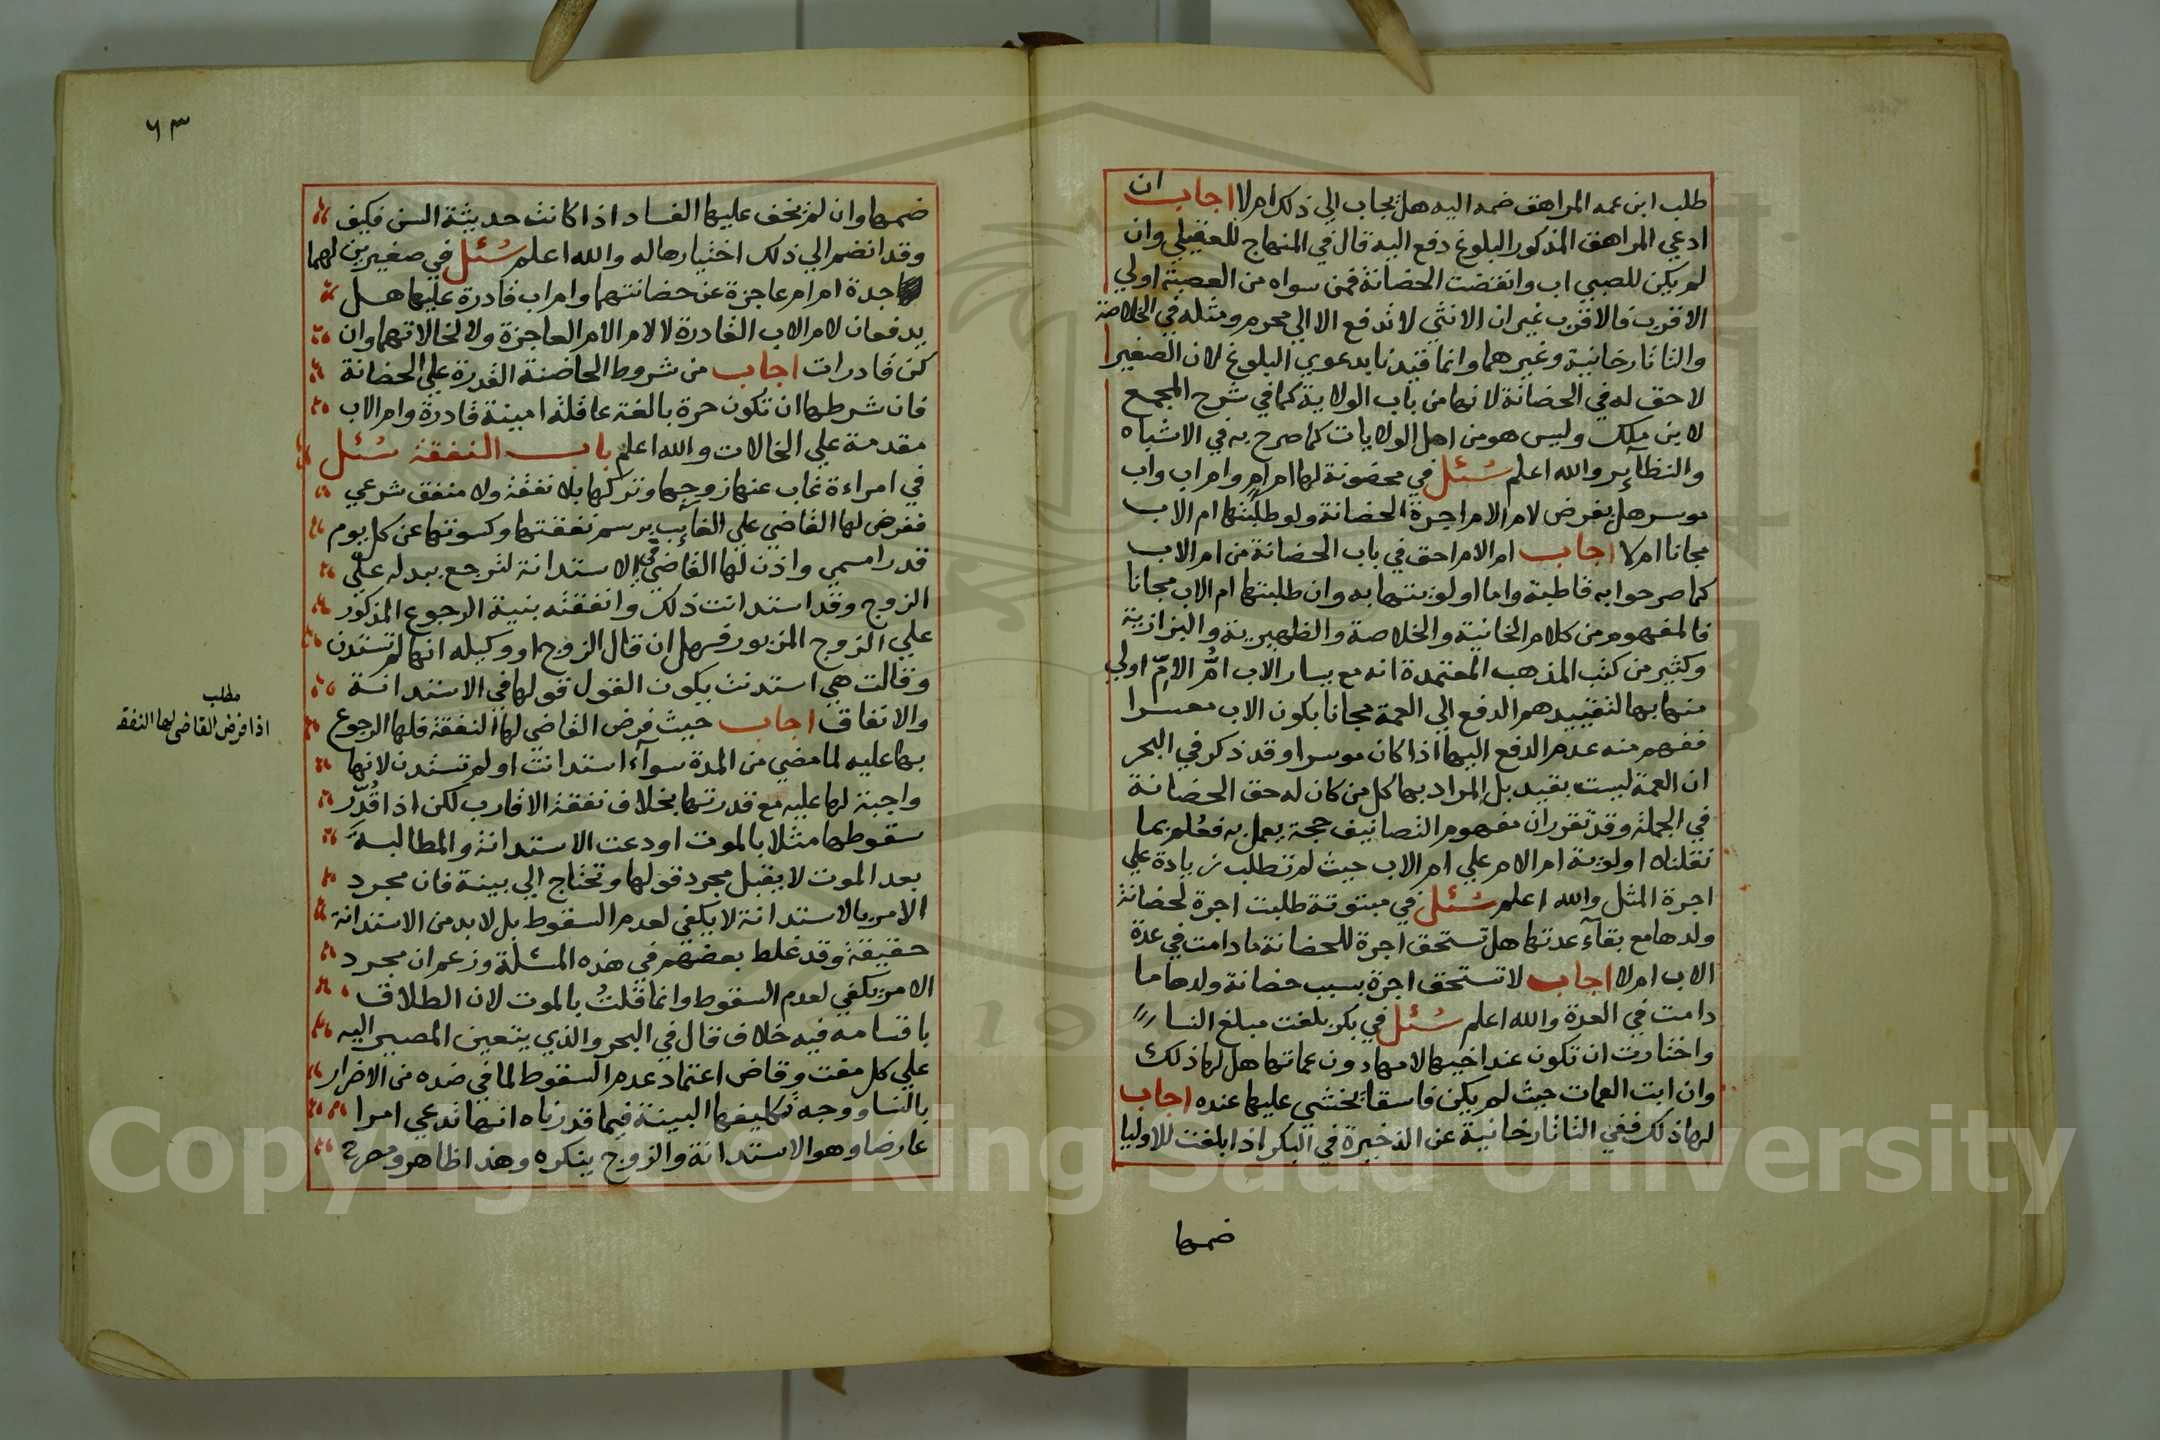 طلب ابن عمه المراهق ضمه اليه هل يجاب الي ذلك ام لا اجاب ان
ادعي المراهق المذكور البلوغ دفع اليه قال في المنهاج للعقيلي وان
لم يكن للصبي اب وانقضت الحضانة فمن سواه من العصبة اولي
الاقرب فالاقرب غير ان الانثي لا تدفع الا الي محرم ومثله في الخلاصة
والتاتارخانية وغيرهما وانما قيدنا بدعوي البلوغ لان الصغير
لا حق له في الحضانة لانها من باب الولاية كما في شرح المجمع
لابن ملك وليس هو من اهل الولايات كما صرح به في الاشباه
والنظاير والله اعلم سئل في محضونة لها ام ام وام اب واب
موسر هل يفرض لام الام اجرة الحضانة ولو طلبتها ام الاب
مجانا ام لا اجاب ام الام احق في باب الحضانة من ام الاب
كما صرحوا به قاطبة واما اولويتها به وان طلبتها ام الاب مجانا
فالمفهوم من كلام الخانية والخلاصة والظهيرية والبزازية
وكثير من كتب المذهب المعتمدة انه مع يسار الاب امُّ الامّ اولي
منها بها لتقييدهم الدفع الي العمة مجانا بكون الاب معسرا
ففهم منه عدم الدفع اليها اذا كان موسرا وقد ذكر في البحر
ان العمة ليست بقيد بل المراد بها كل من كان له حق الحضانة
في الجملة وقد تقرر ان مفهوم التصانيف حجة يعمل به فعُلم بما
نقلناه اولوية ام الام علي ام الاب حيث لم تطلب زيادة علي
اجرة المثل والله اعلم سئل في مبتوتة طلبت اجرة لحضانة
ولدها مع بقآء عدتها هل تستحق اجرة للحضانة ما دامت في عدة
الاب ام لا اجاب لا تستحق اجرة بسبب حضانة ولدها ما
دامت في العدة والله اعلم سئل في بكر بلغت مبلغ النسا
واختارت ان تكون عند اخيها لامها دون عماتها هل لها ذلك
وان ابت العمات حيث لم يكن فاسقا يخشي عليها عنده اجاب
لها ذلك ففي التاتارخانية عن الذخيرة في البكر اذا بلغت للاوليا
ضمها
٦٣
ضمها وان لم يخف عليها الفساد اذا كانت حديثة السن فكيف
وقد انضم الي ذلك اختيارها له والله اعلم سئل في صغيرين لهما
جدة ام ام عاجزة عن حضانتهما وام اب قادرة عليها هل
يدفعان لام الاب القادرة لا لام الام العاجزة ولا لخالاتهما وان
كن قادرات اجاب من شروط الحاضنة القدرة علي الحضانة
فان شرطها ان تكون حرة بالغة عاقلة امينة قادرة وام الاب
مقدمة علي الخالات والله اعلم باب النفقة سئل
في امراءة غاب عنها زوجها وتركها بلا نفقة ولا منفق شرعي
ففرض لها القاضي علي الغائب برسم نفقتها وكسوتها عن كل يوم
قدرا مسمي واذن لها القاضي في الاستدانة لترجع ببدله علي
الزوج وقد استدانت ذلك وانفقته بنية الرجوع المذكور
علي الزوج المزبور فهل ان قال الزوج او وكيله انها لم تستدن
وقالت هي استدنت يكون القول قولها في الاستدانة
والانفاق اجاب حيث فرض القاضي لها النفقة فلها الرجوع
بها عليه لما مضي من المدة سوآء استدانت او لم تستدن لانها
واجبة لها عليه مع قدرتها بخلاف نفقة الاقارب لكن اذا قُدّر
سقوطها مثلا بالموت او دعت الاستدانة والمطالبة
بعد الموت لا يقبل مجرد قولها وتحتاج الي بينة فان مجرد
الامر بالاستدانة لا يكفي لعدم السقوط بل لا بد من الاستدانة
حقيقة وقد غلط بعضهم في هذه المسئلة وزعم ان مجرد
الامر يكفي لعدم السقوط وانما قلتُ بالموت لان الطلاق
باقسامه فيه خلاف قال في البحر والذي يتعين المصير اليه
علي كل مفت وقاض اعتماد عدم السقوط لما في ضده من الاضرار
بالنسا ووجه تكليفها البينة فيما قدرناه انها تدعي امرا
عارضا وهو الاستدانة والزوج ينكره وهذا ظاهر ومصرح
مطلب
اذا فرض القاضي لها النفقة
Copyright © King Saud University